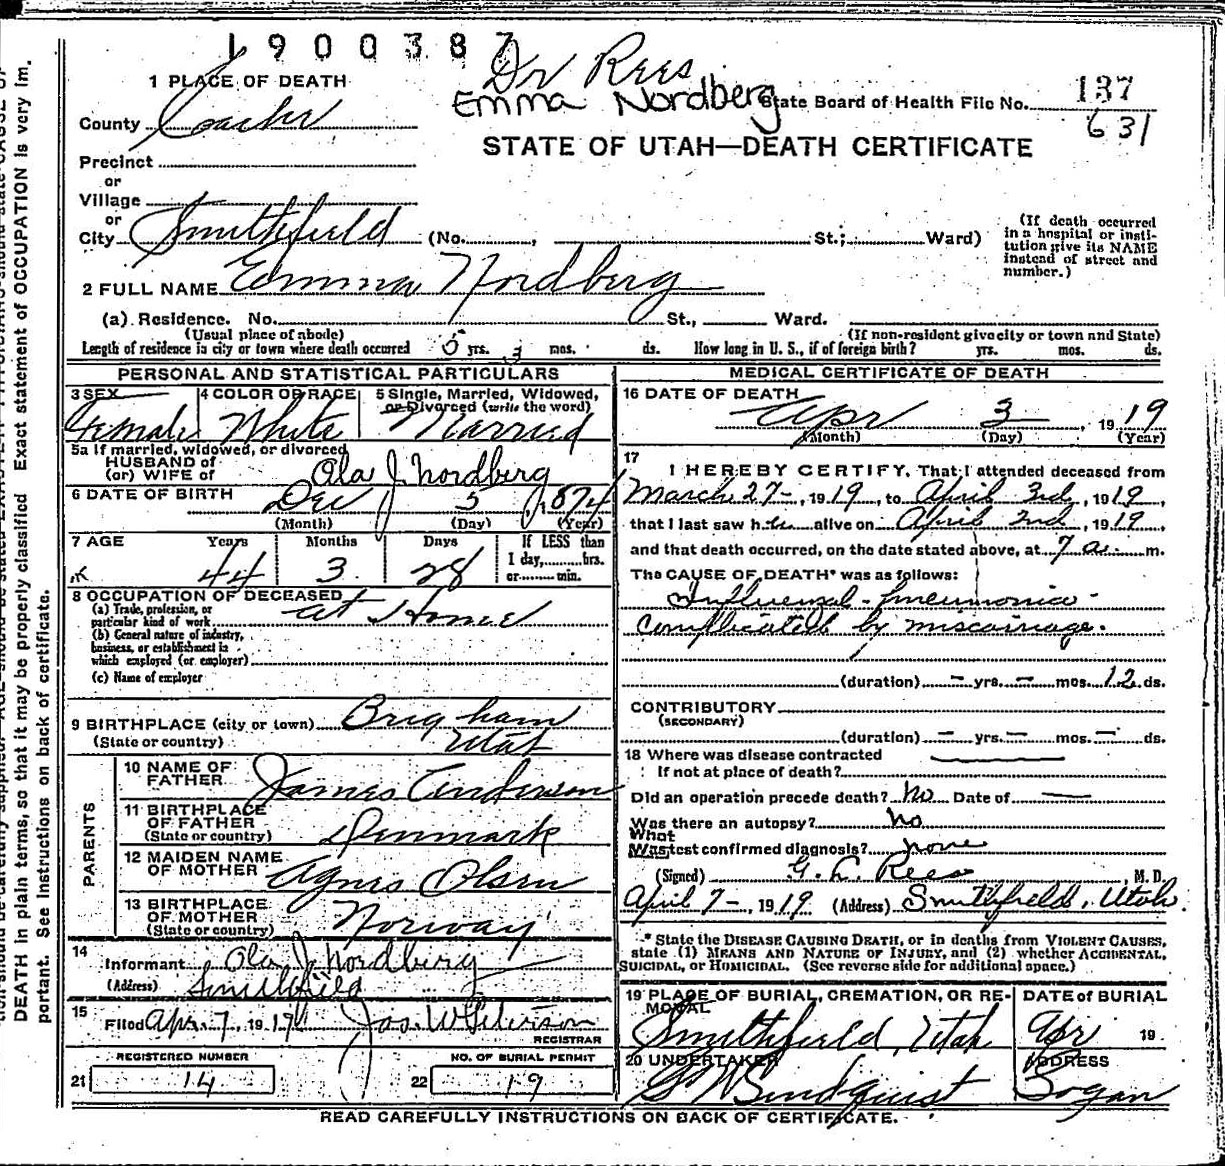 1900387
Dr Rees
Emma Nordberg
State Board of Health File No. 137
631
1 PLACE OF DEATH
County Cache
STATE OF UTAH—DEATH CERTIFICATE
Precinct
or
Village
or
City Smithfield (No. , St.; Ward)
(If death occurred in a hospital or insti-
tution give its NAME
instead of street and
number.)
2 FULL NAME Emma Nordberg
(a) Residence. No. St., Ward.
(Usual place of abode) (If non-resident give city or town and State)
Length of residence in city or town where death occurred 5 yrs. 3 mos. ds. How long in U. S., if of foreign birth? yrs. mos. ds.
PERSONAL AND STATISTICAL PARTICULARS
3 SEX Female
4 COLOR OR RACE White
5 Single, Married, Widowed,
or Divorced (write the word)
Married
5a If married, widowed, or divorced
HUSBAND of
(or) WIFE of Ola J Nordberg
6 DATE OF BIRTH Dec 5, 1874
(Month) (Day) (Year)
7 AGE Years Months Days If LESS than
1 day, hrs.
or min.
44 3 28
8 OCCUPATION OF DECEASED
(a) Trade, profession, or
particular kind of work at Home
(b) General nature of industry,
business, or establishment in
which employed (or employer)
(c) Name of employer
9 BIRTHPLACE (city or town) Brigham
(State or country) Utah
PARENTS
10 NAME OF
FATHER James Anderson
11 BIRTHPLACE
OF FATHER
(State or country) Denmark
12 MAIDEN NAME
OF MOTHER Agnes Olsen
13 BIRTHPLACE
OF MOTHER
(State or country) Norway
14
Informant Ola J Nordberg
(Address) Smithfield
15
Filed Apr. 7, 1919 Jas. W Peterson
REGISTRAR
REGISTERED NUMBER NO. OF BURIAL PERMIT
21 14 22 19
MEDICAL CERTIFICATE OF DEATH
16 DATE OF DEATH
Apr 3 1919
(Month) (Day) (Year)
17
I HEREBY CERTIFY, That I attended deceased from
March 27-, 1919, to April 3rd, 1919,
that I last saw her alive on April 2nd, 1919,
and that death occurred, on the date stated above, at 7 a. m.
The CAUSE OF DEATH* was as follows:
Influenzal-Pneumonia-
complicated by miscarriage.
(duration) – yrs. – mos. 12 ds.
CONTRIBUTORY
(SECONDARY)
(duration) – yrs. – mos. – ds.
18 Where was disease contracted
If not at place of death?
Did an operation precede death? No Date of —
Was there an autopsy? No
What
Was test confirmed diagnosis? none
(Signed) G. L. Rees, M. D.
April 7-, 1919 (Address) Smithfield, Utah.
* State the DISEASE CAUSING DEATH, or in deaths from VIOLENT CAUSES,
state (1) MEANS AND NATURE OF INJURY, and (2) whether ACCIDENTAL,
SUICIDAL, or HOMICIDAL. (See reverse side for additional space.)
19 PLACE OF BURIAL, CREMATION, OR RE-
MOVAL
Smithfield, Utah
DATE of BURIAL
Apr 19
20 UNDERTAKER
G W Lindquist
ADDRESS
Logan
READ CAREFULLY INSTRUCTIONS ON BACK OF CERTIFICATE.
DEATH in plain terms, so that it may be properly classified. Exact statement of OCCUPATION is very im-
portant. See instructions on back of certificate.